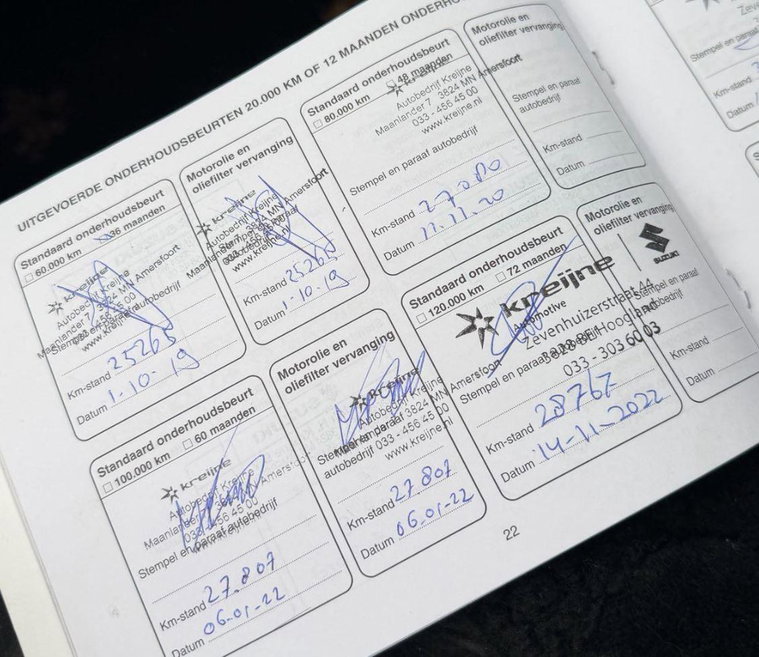 UITGEVOERDE ONDERHOUDSBEURTEN 20.000 KM OF 12 MAANDEN
Standaard onderhoudsbeurt
60.000 km
36 maanden
kreijne
Autobedrijf Kreijne
Maanlander 7 3824 MN Amersfoort
Stempel en paraaf autobedrijf
www.kreijne.nl
Km-stand 25268
Datum 1-10-19
Motorolie en
oliefilter vervanging
kreijne
Autobedrijf Kreijne
Maanlander 7 3824 MN Amersfoort
Stempel en paraaf
autobedrijf
033 - 456 45 00
www.kreijne.nl
Km-stand 25268
Datum 1-10-19
Standaard onderhoudsbeurt
80.000 km
48 maanden
Autobedrijf Kreijne
Maanlander 7 3824 MN Amersfoort
033 - 456 45 00
www.kreijne.nl
Stempel en paraaf autobedrijf
Km-stand 27080
Datum 11.11.20
Motorolie en
oliefilter vervanging
Stempel en paraaf
autobedrijf
Km-stand
Datum
Standaard onderhoudsbeurt
100.000 km
60 maanden
kreijne
Autobedrijf Kreijne
Maanlander 7 3824 MN Amersfoort
033 - 456 45 00
Stempel en paraaf autobedrijf
www.kreijne.nl
Km-stand 27.807
Datum 06-01-22
Motorolie en
oliefilter vervanging
kreijne
Autobedrijf Kreijne
Maanlander 7 3824 MN Amersfoort
Stempel en paraaf
autobedrijf 033 - 456 45 00
www.kreijne.nl
Km-stand 27.807
Datum 06-01-22
Standaard onderhoudsbeurt
120.000 km
72 maanden
kreijne
Automotive
Zevenhuizerstraat 44
Stempel en paraaf autobedrijf
Hoogland
033 - 303 60 03
Km-stand 28767
Datum 14-11-2022
Motorolie en
oliefilter vervanging
SUZUKI
Stempel en paraaf
autobedrijf
Km-stand
Datum
22